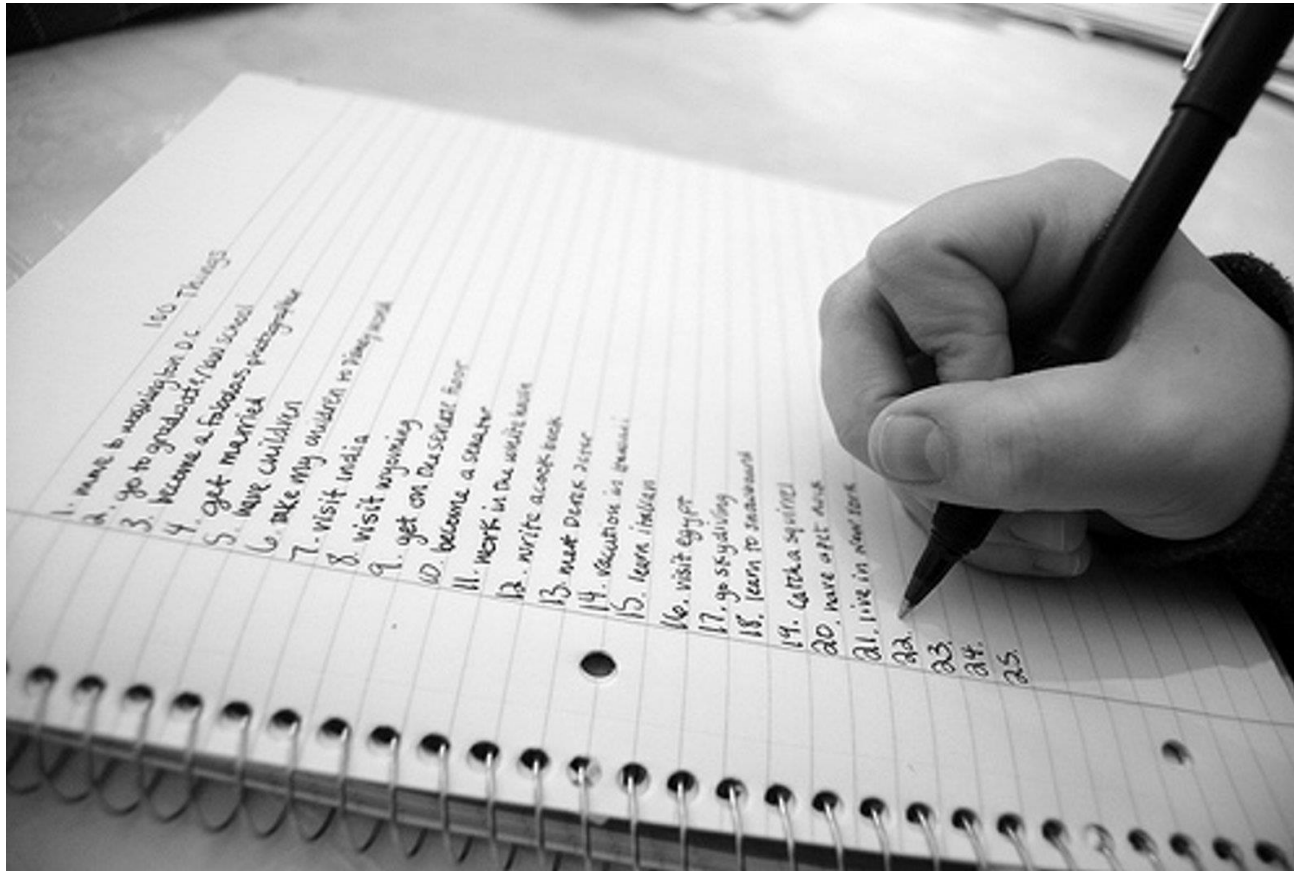 100 Things
1. move to washington D.C.
2. go to graduate/law school
3. become a fabulous photographer
4. get married
5. have children
6. take my children to Disney world
7. visit india
8. visit wyoming
9. get on the senate floor
10. become a senator
11. work in the white house
12. write a cook book
13. meet Derek Jeter
14. vacation in Hawaii
15. learn italian
16. visit egypt
17. go skydiving
18. learn to
19. catch a squirrel
20. have a pet duck
21. live in New York
22.
23.
24.
25.